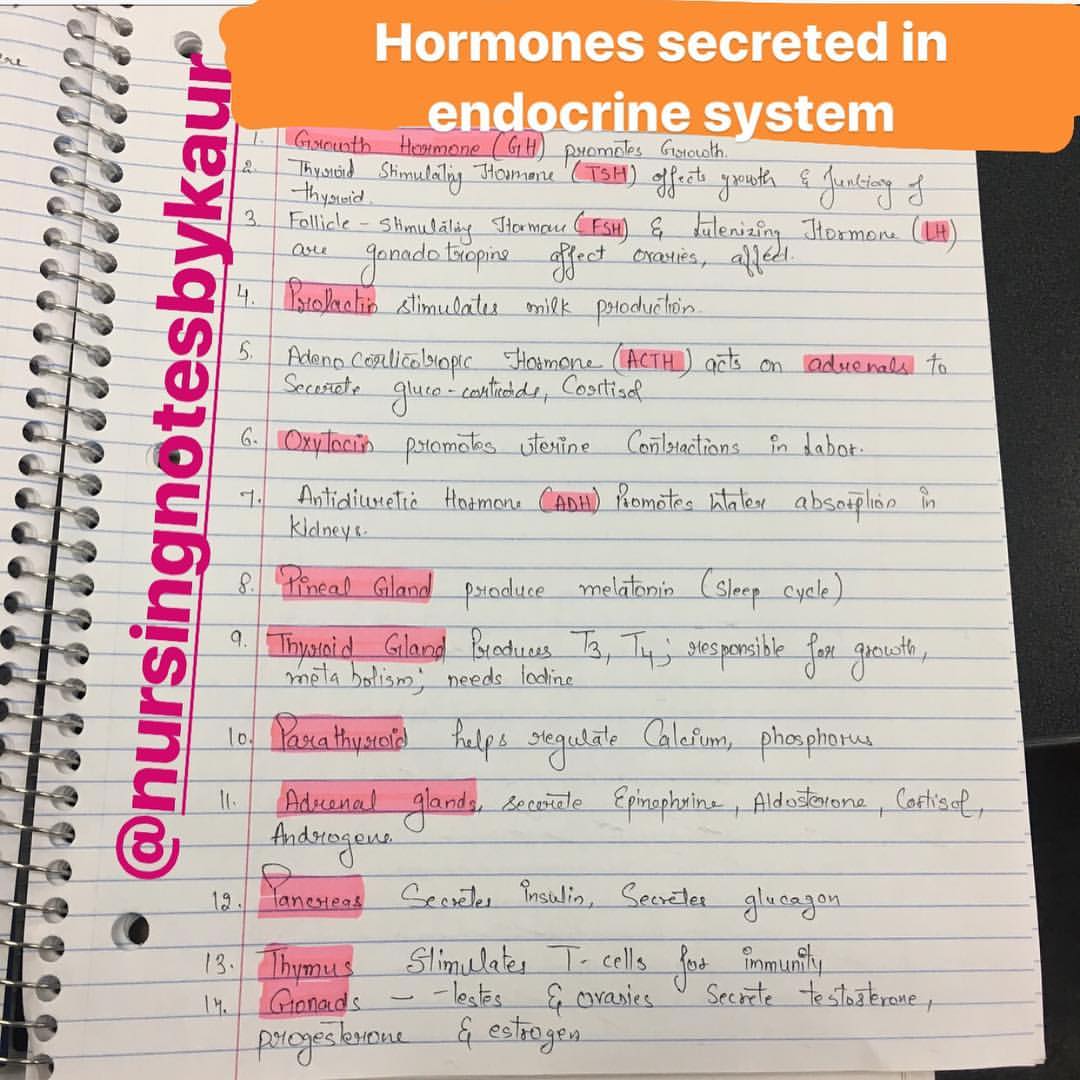 Hormones secreted in
endocrine system
@nursingnotesbykaur
1. Growth Hormone (GH) promotes Growth.
2. Thyroid Stimulating Hormone (TSH) affects growth & of
thyroid.
3. Follicle - Stimulating Hormone (FSH) & Lutenizing Hormone (LH)
are gonadotropins affect ovaries, affect.
4. Prolactin stimulates milk production.
5. Adenocorlicotropic Hormone (ACTH) acts on adrenals to
Secerete gluco-corticoids, Cortisol
6. Oxytocin promotes uterine Contractions in Labor.
7. Antidiuretic Hormone (ADH) Promotes Water absorption in
Kidneys.
8. Pineal Gland produce melatonin (Sleep cycle)
9. Thyroid Gland Produces T3, T4; responsible for growth,
metabolism; needs Iodine
10. Parathyroid helps regulate Calcium, phosphorus
11. Adrenal glands, secerete Epinephrine, Aldosterone, Cortisol,
Androgens.
12. Pancreas Secretes insulin, Secretes glucagon
13. Thymus Stimulates T-cells for immunity
14. Gonads - Testes & ovaries Secrete testosterone,
progesterone & estrogen